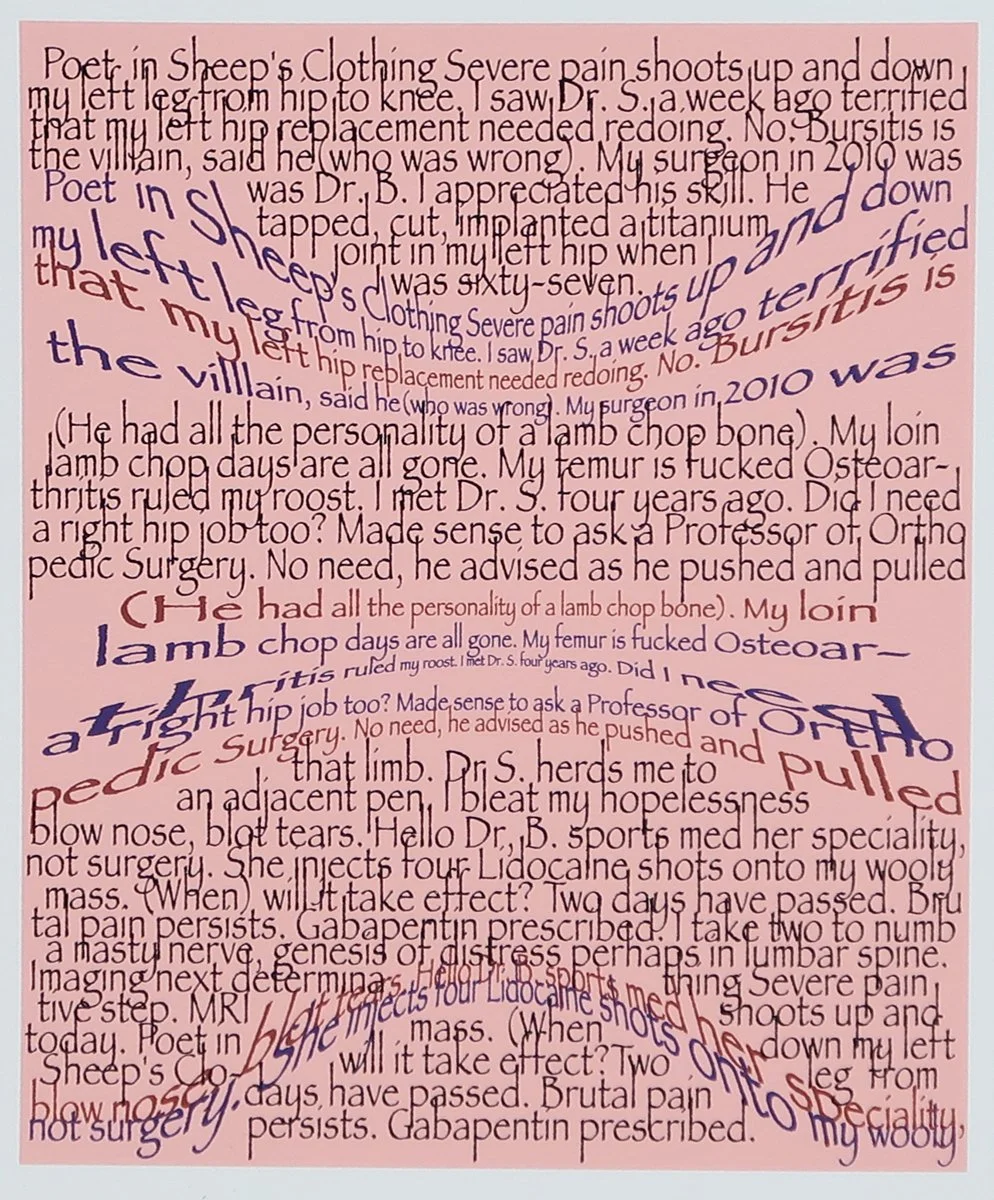 Poet in Sheep's Clothing Severe pain shoots up and down
my left leg from hip to knee. I saw Dr. S. a week ago terrified
that my left hip replacement needed redoing. No. Bursitis is
the villain, said he (who was wrong). My surgeon in 2010 was
was Dr. B. I appreciated his skill. He
tapped, cut, implanted a titanium
joint in my left hip when I
was sixty-seven.
Poet in Sheep's Clothing Severe pain shoots up and down
my left leg from hip to knee. I saw Dr. S. a week ago terrified
that my left hip replacement needed redoing. No. Bursitis is
the villlain, said he (who was wrong). My surgeon in 2010 was
(He had all the personality of a lamb chop bone). My loin
lamb chop days are all gone. My femur is fucked Osteoar-
thritis ruled my roost. I met Dr. S. four years ago. Did I need
a right hip job too? Made sense to ask a Professor of Ortho
pedic Surgery. No need, he advised as he pushed and pulled
(He had all the personality of a lamb chop bone). My loin
lamb chop days are all gone. My femur is fucked Osteoar-
thritis ruled my roost. I met Dr. S. four years ago. Did I need
a right hip job too? Made sense to ask a Professor of Ortho
pedic Surgery. No need, he advised as he pushed and pulled
that limb. Dr S. herds me to
an adjacent pen, I bleat my hopelessness
blow nose, blot tears. Hello Dr. B. sports med her speciality,
not surgery. She injects four Lidocaine shots onto my wooly
mass. (When) will it take effect? Two days have passed. Bru
tal pain persists. Gabapentin prescribed. I take two to numb
a masty nerve, genesis of distress perhaps in lumbar spine.
Imaging next determina-
tive step. MRI
today. Poet in
Sheep's Clo-
thing Severe pain
shoots up and
down my left
leg from
blow nose, blot tears. Hello Dr. B. sports med her speciality,
not surgery. She injects four Lidocaine shots onto my wooly
mass. (When
will it take effect? Two
days have passed. Brutal pain
persists. Gabapentin prescribed.